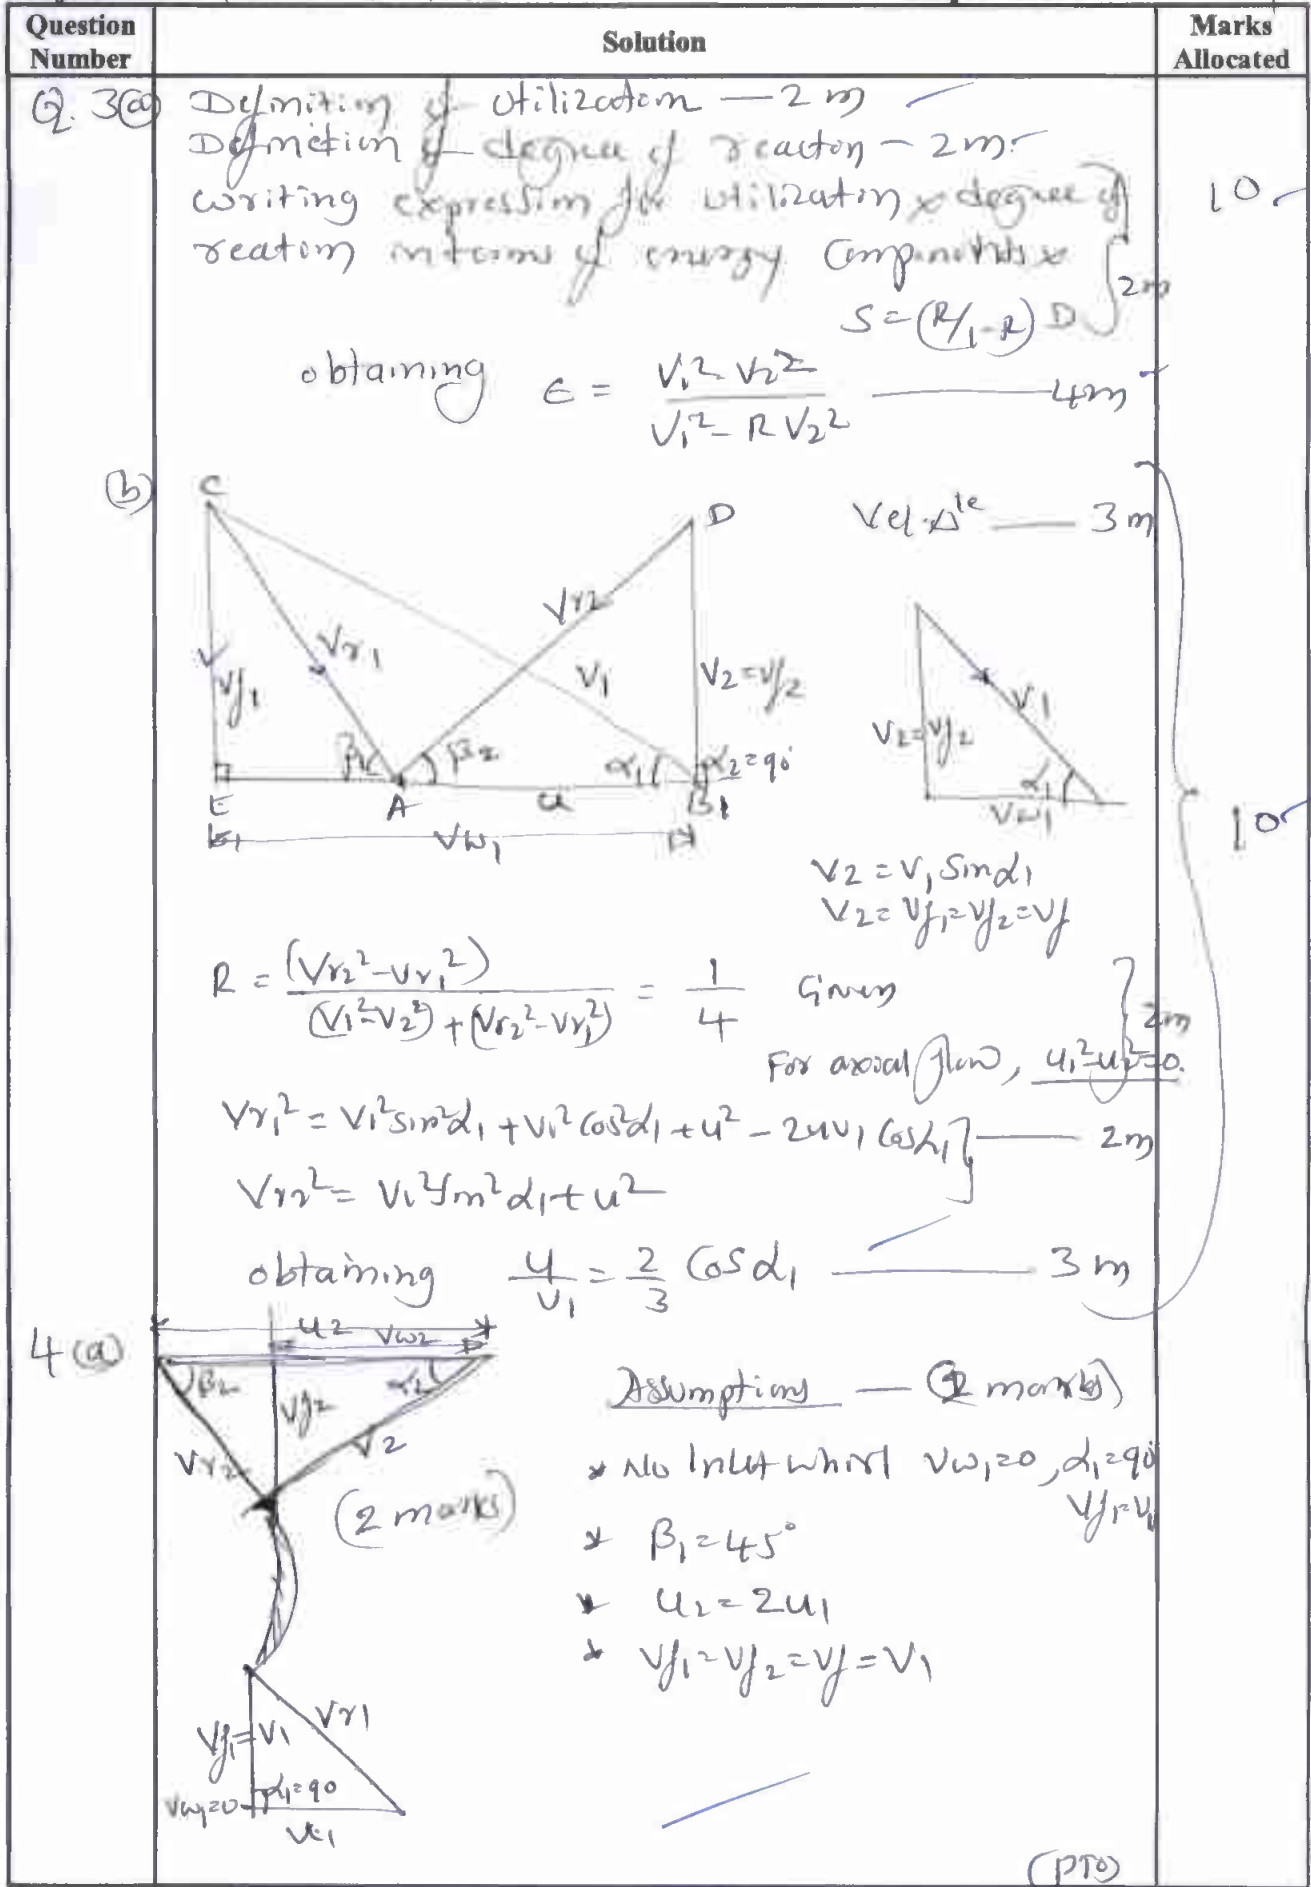 Question Number
Solution
Marks Allocated
Q. 3(a) Definition of utilization — 2 m
Definition of degree of reaction — 2 m
writing expression for utilization & degree of
reation interms of energy Componants &
2m
10
S = (R/1-R) D
obtaining ϵ = V₁² - V₂² / V₁² - R V₂² — 4m
(b)
Vel. Δle — 3 m
C
D
Vr1
Vf1
Vr2
V1
V2=Vf2
β1
β2
α1
α2=90°
E
A
u
B
Vw1
V1
V2=Vf2
α1
Vw1
10
V2 = V1 Sinα1
V2 = Vf1 = Vf2 = Vf
R = (Vr2² - Vr1²) / (V1² - V2²) + (Vr2² - Vr1²) = 1/4 Given
2m
For axial flow, u1² - u2² = 0.
Vr1² = V1² sin²α1 + V1² cos²α1 + u² - 2uV1 Cosα1 — 2m
Vr2² = V1² Sin²α1 + u²
obtaining u/V1 = 2/3 Cos α1 — 3 m
4(a)
u2
Vw2
β2
α2
Vf2
Vr2
V2
(2 marks)
Assumptions — (2 marks)
* No Inlet whirl Vw1=0, α1=90°
Vf1=V1
* β1=45°
* U2=2U1
* Vf1=Vf2=Vf=V1
Vf1=V1
Vr1
α1=90
Vw1=0
u1
(PTO)